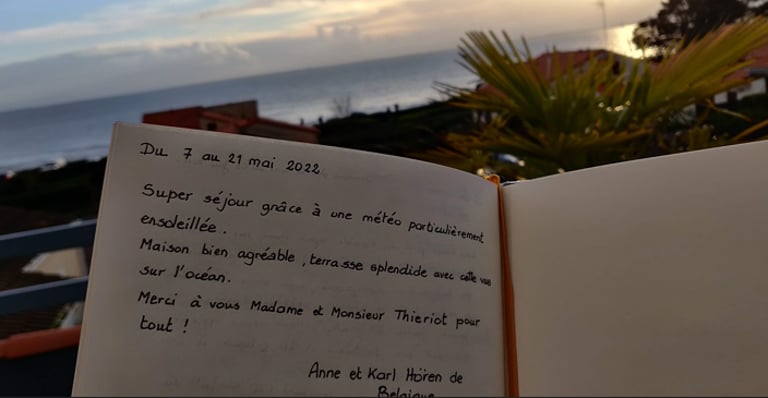 Du 7 au 21 mai 2022
Super séjour grâce à une météo particulièrement
ensoleillée.
Maison bien agréable, terrasse splendide avec cette vue
sur l'océan.
Merci à vous Madame et Monsieur Thieriot pour
tout !
Anne et Karl Hören de
Belgique